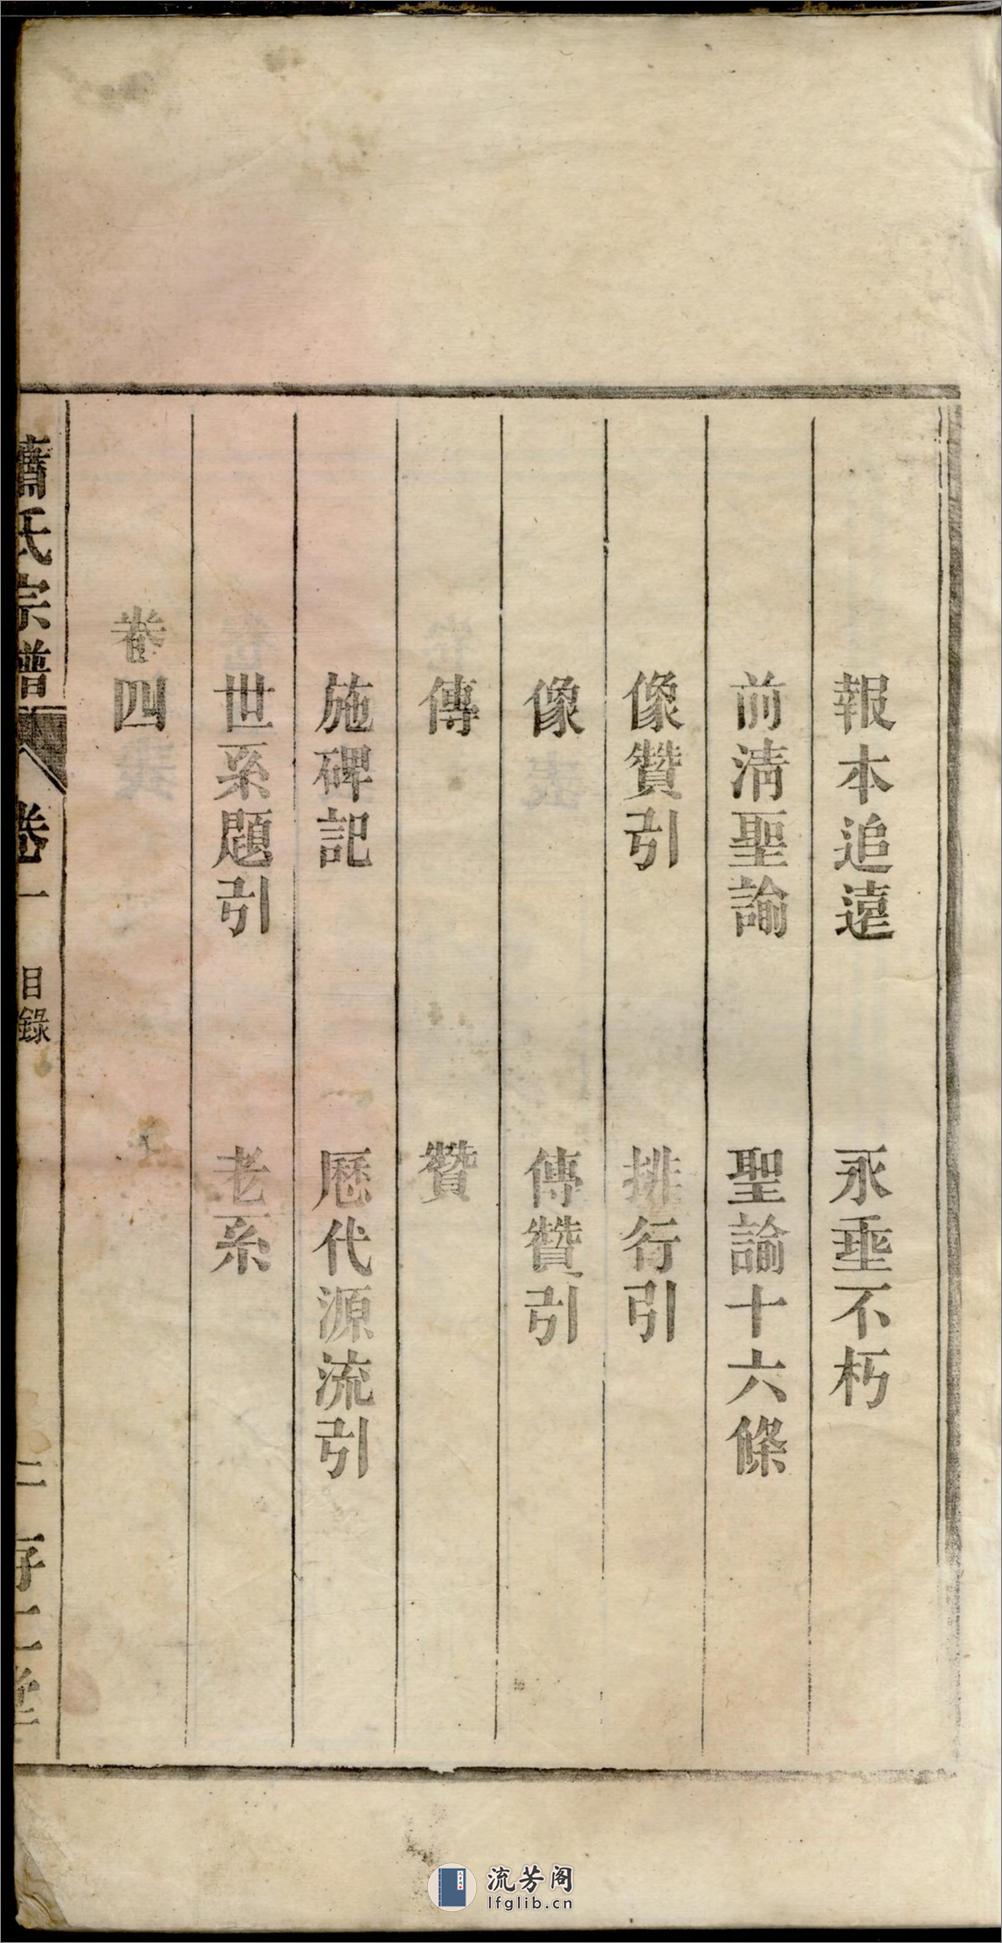 報本追遠 永垂不朽
前淸聖諭 聖諭十六條
像贊引 排行引
像 傳贊引
傳 贊
施碑記 歷代源流引
世系題引 老系
卷四
氏宗譜 卷一 目錄 二 存仁堂
流芳阁
lfglib.cn